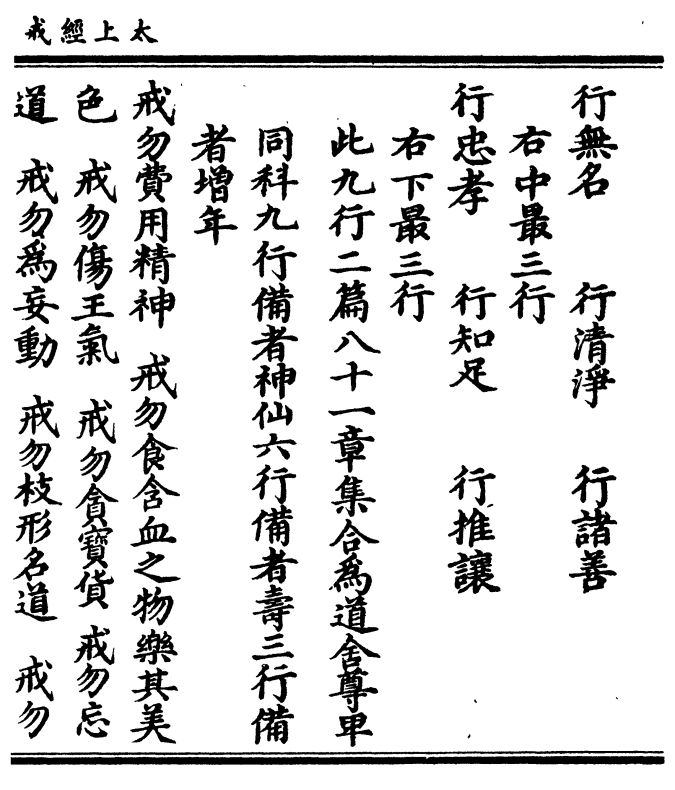 太上經戒
行無名　行清淨　行諸善
右中最三行
行忠孝　行知足　行推讓
右下最三行
此九行二篇八十一章集合爲道舍尊卑
同科九行備者神仙六行備者壽三行備
者增年
戒勿費用精神　戒勿食含血之物樂其美
色　戒勿傷王氣　戒勿貪寶貨　戒勿忘
道　戒勿爲妄動　戒勿枝形名道　戒勿